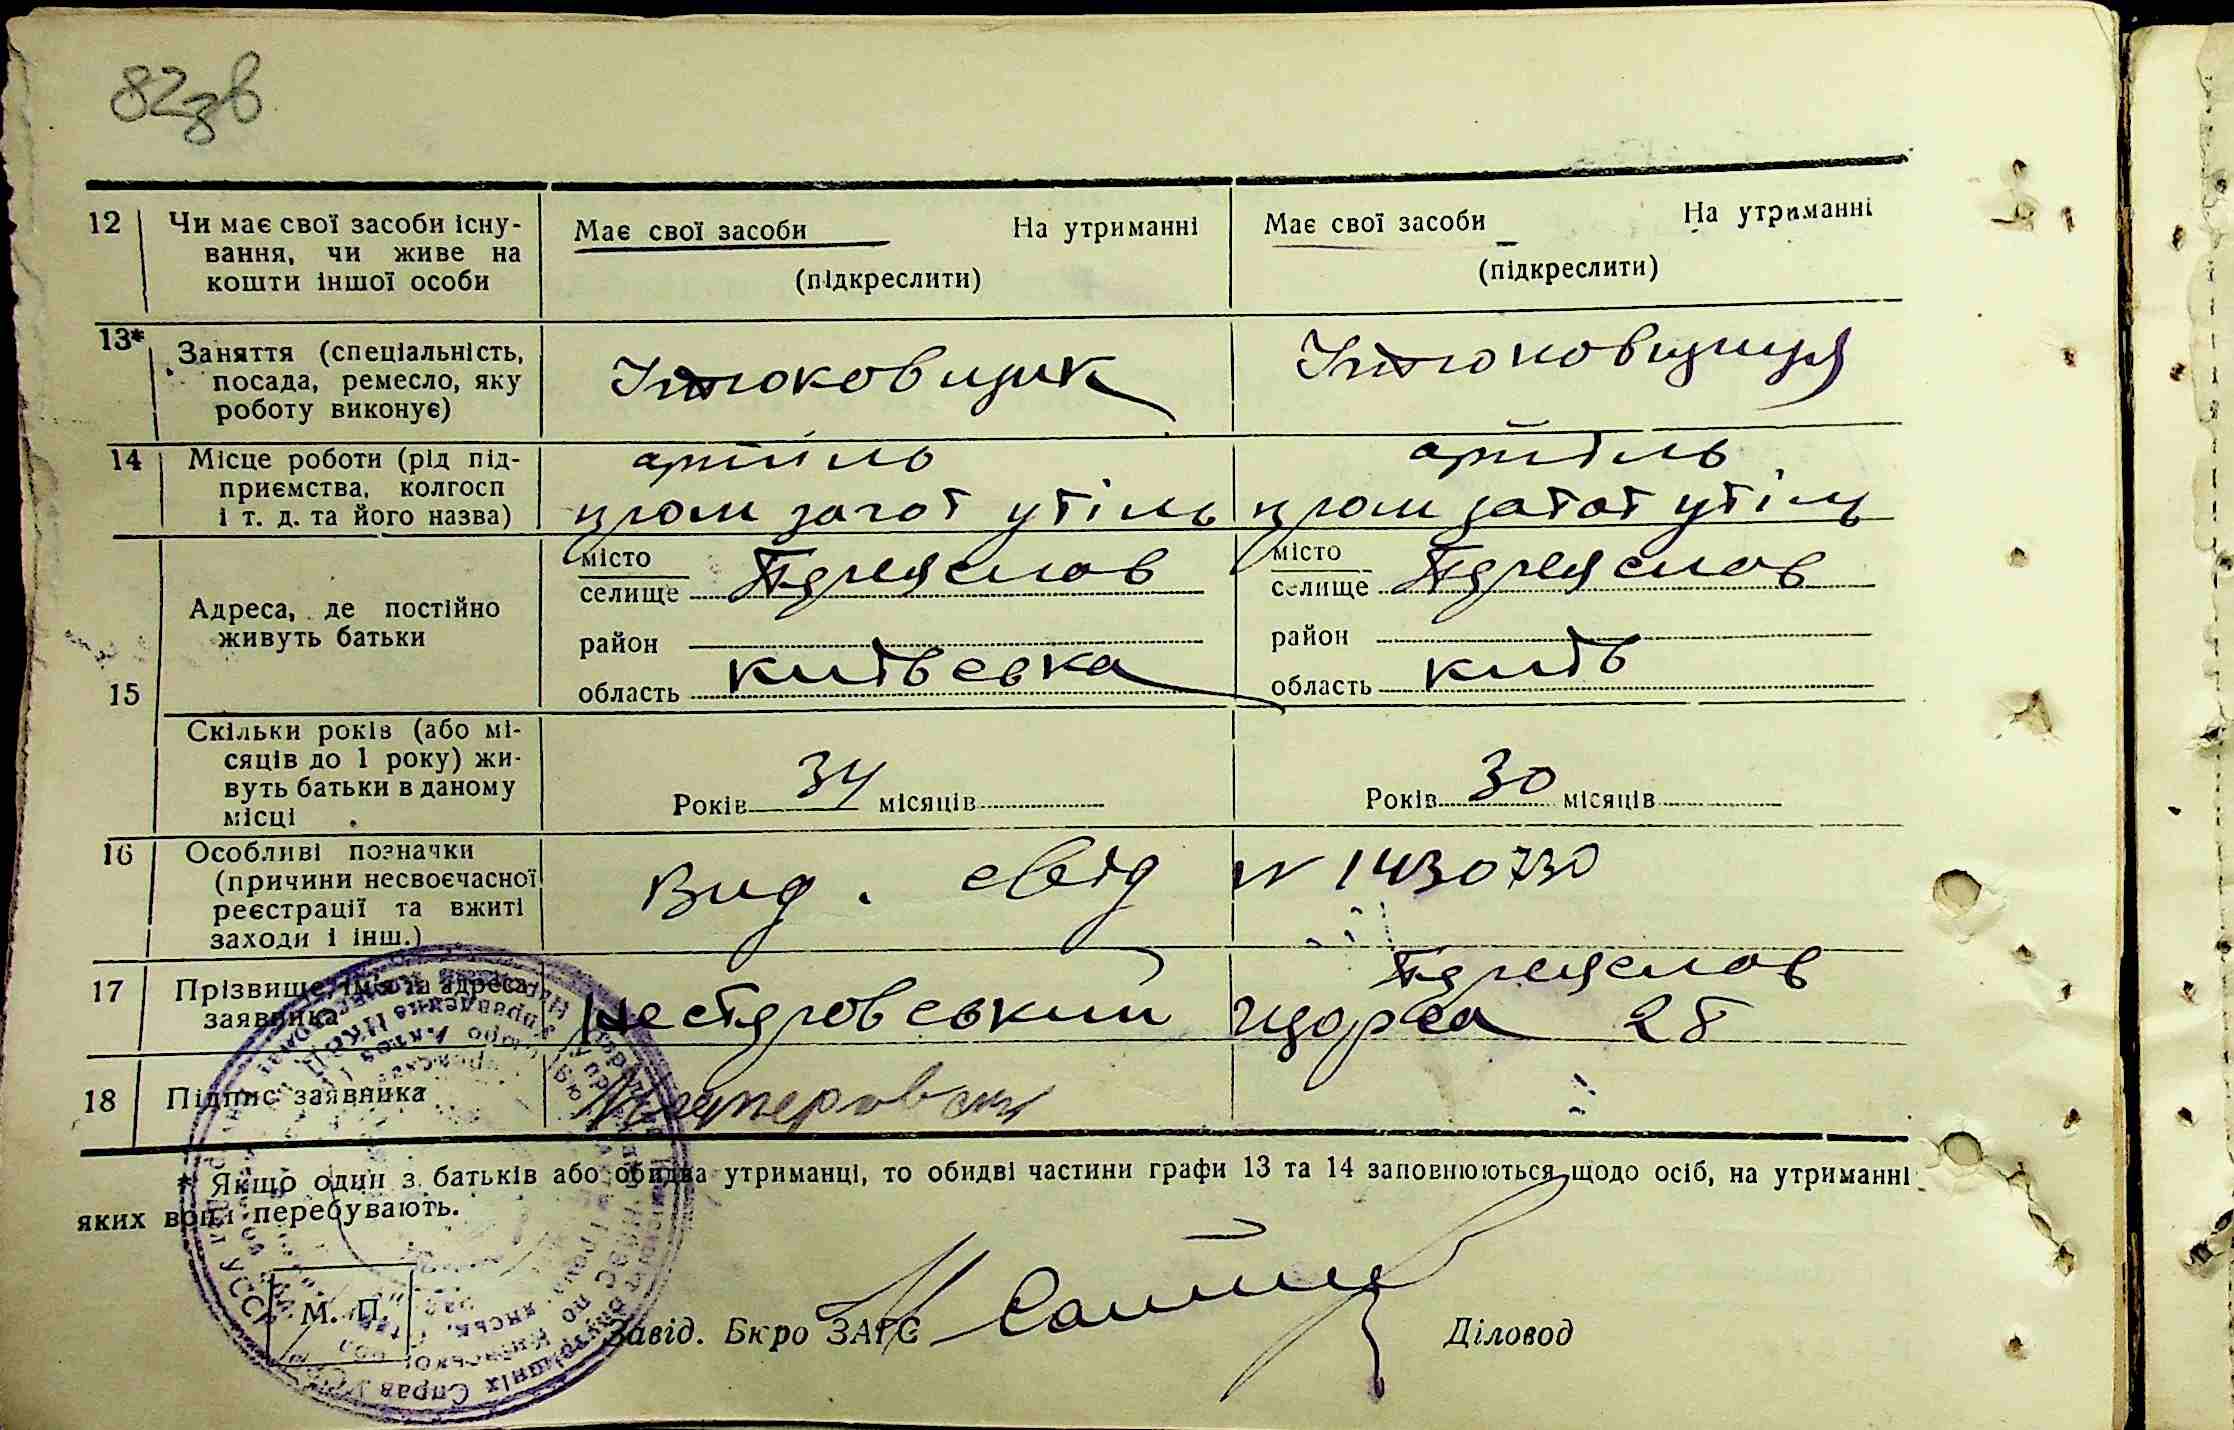 82зв
12 Чи має свої засоби існу-
вання, чи живе на
кошти іншої особи
Має свої засоби На утриманні
(підкреслити)
Має свої засоби На утриманні
(підкреслити)
13* Заняття (спеціальність,
посада, ремесло, яку
роботу виконує)
14 Місце роботи (рід під-
приємства, колгосп
і т. д. та його назва)
артіль
пром загот утіль
артіль
пром загот утіль
15 Адреса, де постійно
живуть батьки
місто
селище Переяслов
район
область київська
місто
селище Переяслов
район
область київ
Скільки років (або мі-
сяців до 1 року) жи-
вуть батьки в даному
місці
Років 34 місяців
Років 30 місяців
16 Особливі позначки
(причини несвоєчасної
реєстрації та вжиті
заходи і інш.)
Вид. свід № 1430730
17 Прізвище, ім'я та адреса
заявника
Нестеровський
Переяслов
щорса 28
18 Підпис заявника
* Якщо один з батьків або обидва утриманці, то обидві частини графи 13 та 14 заповнюються щодо осіб, на утриманні
яких вони перебувають.
М. П.
Завід. Бюро ЗАГС
Діловод